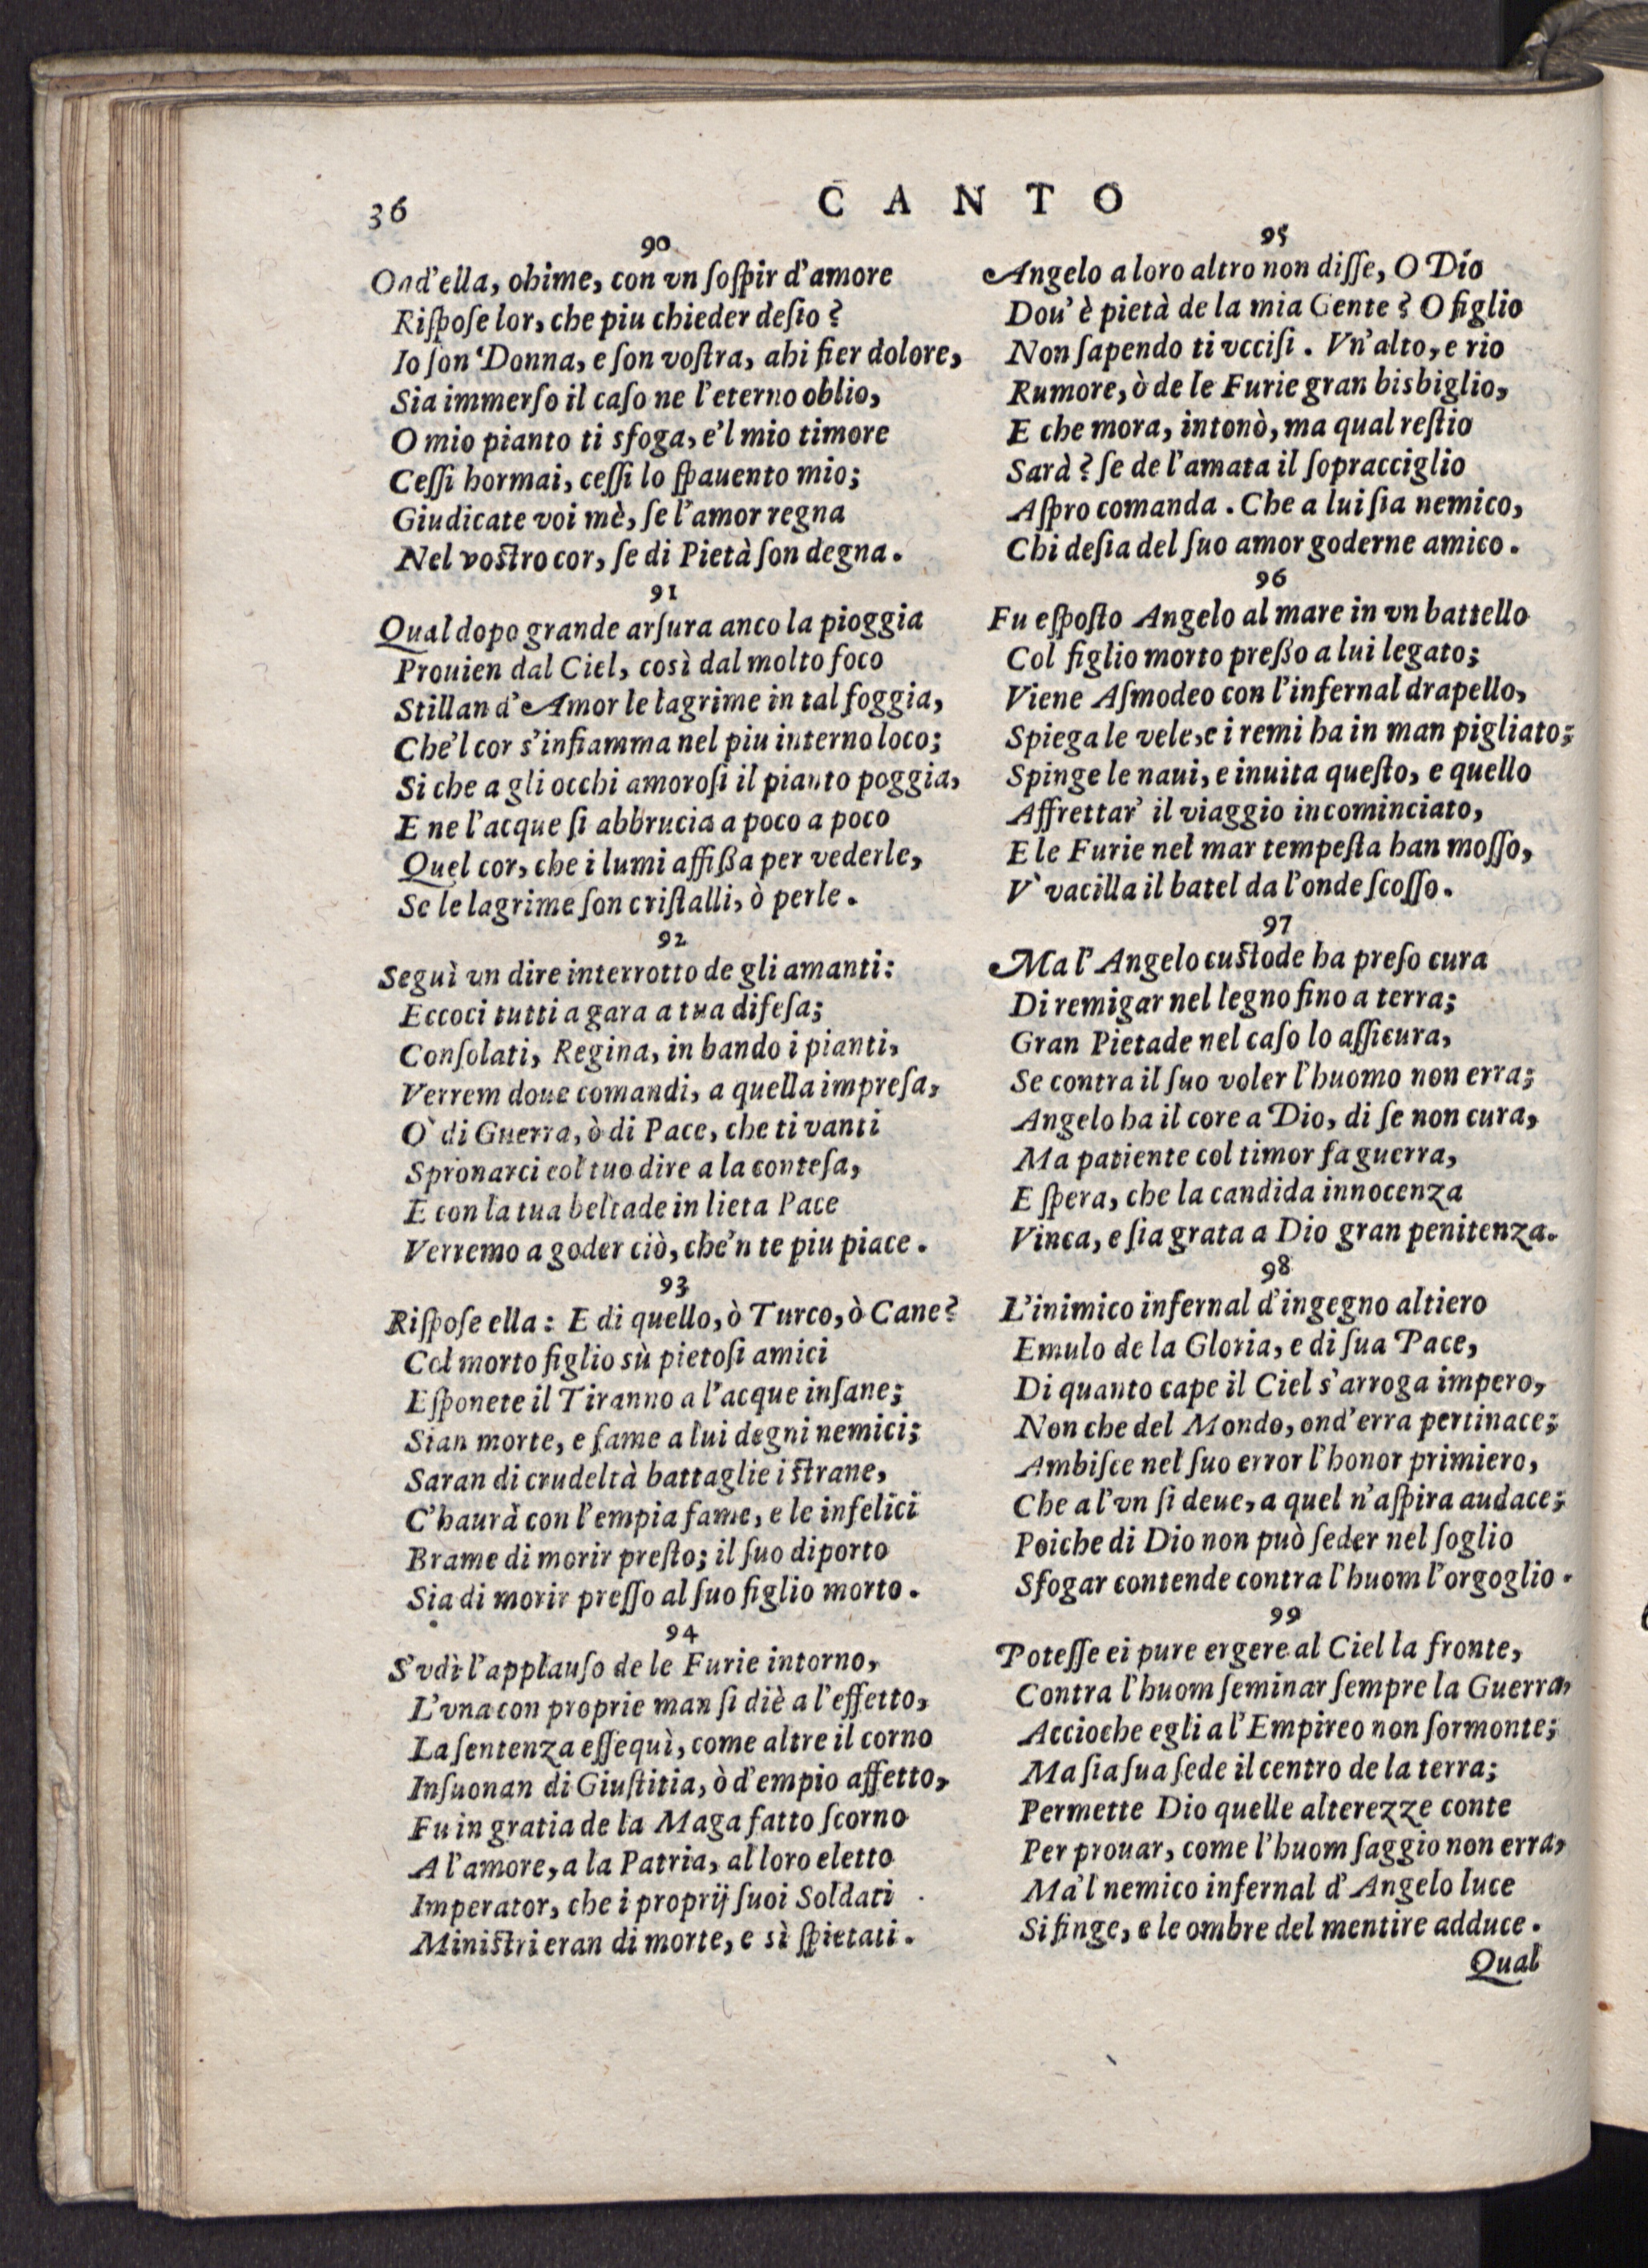 36
CANTO
90
Ond'ella, ohime, con vn ſoſpir d'amore
Riſpoſe lor, che piu chieder deſio?
Io ſon Donna, e ſon voſtra, ahi fier dolore,
Sia immerſo il caſo ne l'eterno oblio,
O mio pianto ti sfoga, e'l mio timore
Ceſſi hormai, ceſſi lo ſpauento mio;
Giudicate voi mè, ſe l'amor regna
Nel voſtro cor, ſe di Pietà ſon degna.
91
Qual dopo grande arſura anco la pioggia
Prouien dal Ciel, così dal molto foco
Stillan d'Amor le lagrime in tal foggia,
Che'l cor s'infiamma nel piu interno loco;
Si che a gli occhi amoroſi il pianto poggia,
E ne l'acque ſi abbrucia a poco a poco
Quel cor, che i lumi affiſsa per vederle,
Se le lagrime ſon criſtalli, ò perle.
92
Seguì vn dire interrotto de gli amanti:
Eccoci tutti a gara a tua difeſa;
Conſolati, Regina, in bando i pianti,
Verrem doue comandi, a quella impreſa,
O' di Guerra, ò di Pace, che ti vanti
Spronarci col tuo dire a la conteſa,
E con la tua beltade in lieta Pace
Verremo a goder ciò, che'n te piu piace.
93
Riſpoſe ella: E di quello, ò Turco, ò Cane?
Col morto figlio sù pietoſi amici
Eſponete il Tiranno a l'acque inſane;
Sian morte, e fame a lui degni nemici;
Saran di crudeltà battaglie iſtrane,
C'haurà con l'empia fame, e le infelici
Brame di morir preſto; il ſuo diporto
Sia di morir preſſo al ſuo figlio morto.
94
S'vdì l'applauſo de le Furie intorno,
L'vna con proprie man ſi diè a l'effetto,
La ſentenza eſſequì, come altre il corno
Inſuonan di Giuſtitia, ò d'empio affetto,
Fu in gratia de la Maga fatto ſcorno
A l'amore, a la Patria, al loro eletto
Imperator, che i proprij ſuoi Soldati
Miniſtri eran di morte, e sì ſpietati.
95
Angelo a loro altro non diſſe, O Dio
Dou'è pietà de la mia Gente? O figlio
Non ſapendo ti vcciſi. Vn'alto, e rio
Rumore, ò de le Furie gran bisbiglio,
E che mora, intonò, ma qual reſtio
Sarà? ſe de l'amata il ſopracciglio
Aſpro comanda. Che a lui ſia nemico,
Chi deſia del ſuo amor goderne amico.
96
Fu eſpoſto Angelo al mare in vn battello
Col figlio morto preſso a lui legato;
Viene Aſmodeo con l'infernal drapello,
Spiega le vele, e i remi ha in man pigliato;
Spinge le naui, e inuita queſto, e quello
Affrettar' il viaggio incominciato,
E le Furie nel mar tempeſta han moſſo,
V' vacilla il batel da l'onde ſcoſſo.
97
Ma l'Angelo cuſtode ha preſo cura
Di remigar nel legno fino a terra;
Gran Pietade nel caſo lo aſſicura,
Se contra il ſuo voler l'huomo non erra;
Angelo ha il core a Dio, di ſe non cura,
Ma patiente col timor fa guerra,
E ſpera, che la candida innocenza
Vinca, e ſia grata a Dio gran penitenza.
98
L'inimico infernal d'ingegno altiero
Emulo de la Gloria, e di ſua Pace,
Di quanto cape il Ciel s'arroga impero,
Non che del Mondo, ond'erra pertinace;
Ambiſce nel ſuo error l'honor primiero,
Che a l'vn ſi deue, a quel n'aſpira audace;
Poiche di Dio non può ſeder nel ſoglio
Sfogar contende contra l'huom l'orgoglio.
99
Poteſſe ei pure ergere al Ciel la fronte,
Contra l'huom ſeminar ſempre la Guerra,
Accioche egli a l'Empireo non ſormonte;
Ma ſia ſua ſede il centro de la terra;
Permette Dio quelle alterezze conte
Per prouar, come l'huom ſaggio non erra,
Ma'l nemico infernal d'Angelo luce
Si finge, e le ombre del mentire adduce.
Qual